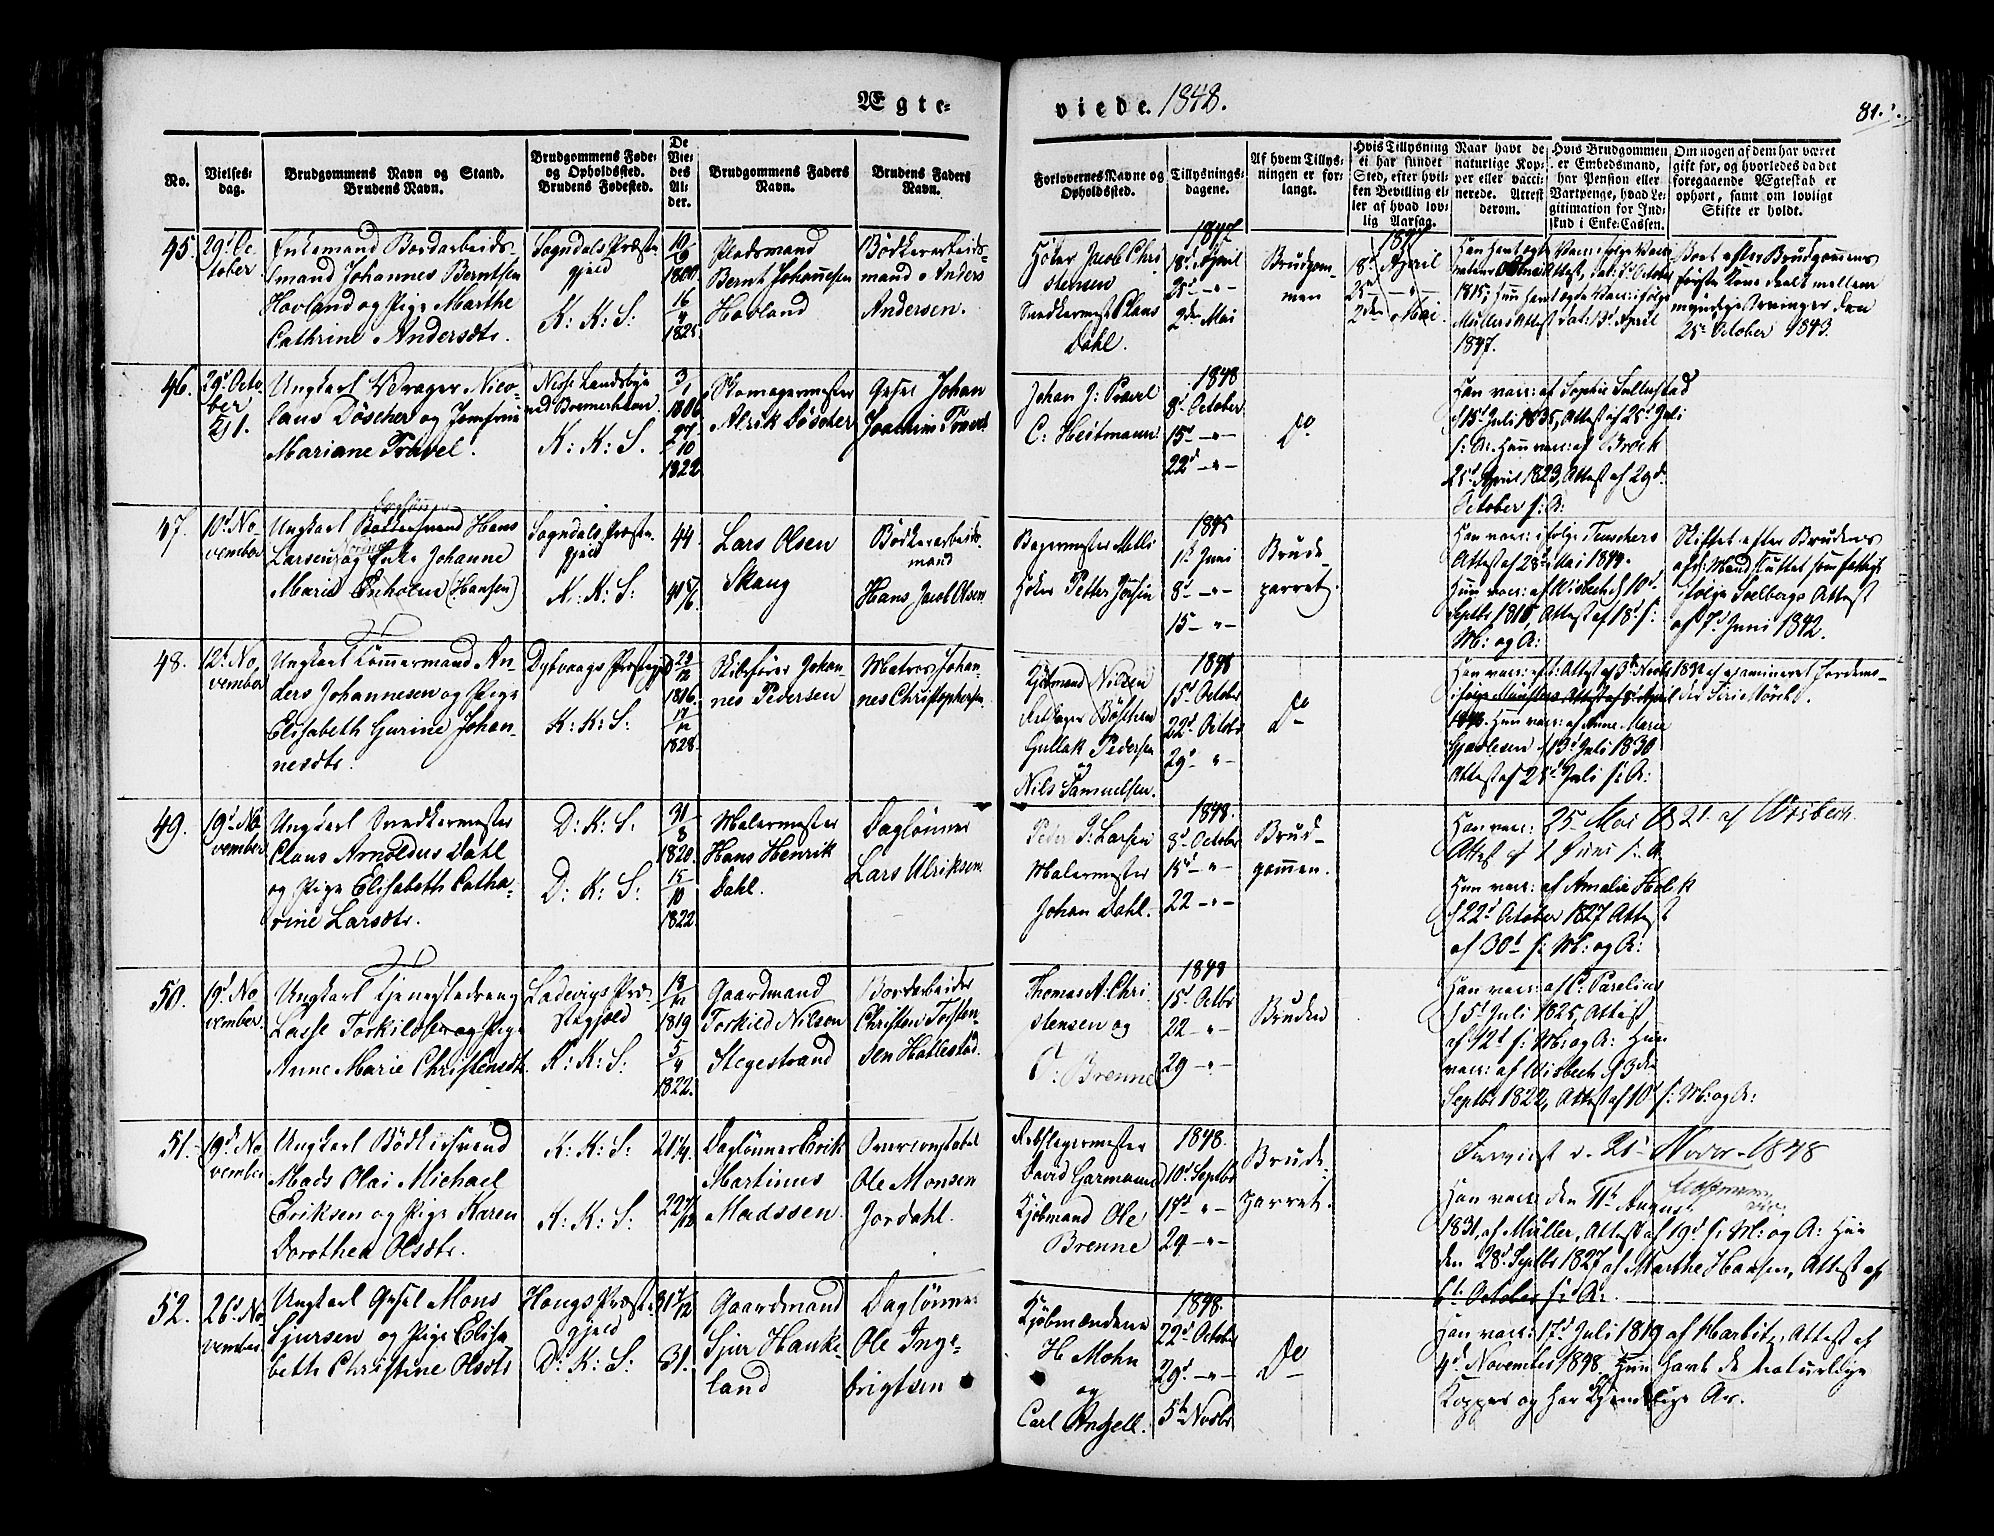 Ægte-
viede. 1848.
81.
No.
Vielses-
dag.
Brudgommens Navn og Stand.
Brudens Navn.
Brudgommens Føde-
og Opholdssted.
Brudens Fødested.
De
Vie-
des
Al-
der.
Brudgommens Faders
Navn.
Brudens Faders
Navn.
Forlovernes Navne og
Opholdssted.
Tillysnings-
dagene.
Af hvem Tillys-
ningen er for-
langt.
Hvis Tillysning
ei har fundet
Sted, efter hvil-
ken Bevilling el-
ler af hvad lov-
lig Aarsag.
Naar havt de
naturlige Kop-
per eller vacci-
nerede. Attest
derom.
Hvis Brudgommen
er Embedsmand,
har Pension eller
Vartpenge, hvad Le-
gitimation for Ind-
skud i Enke-Cassen.
Om nogen af dem har været
gift før, og hvorledes da det
foregaaende Ægteskab er
ophørt, samt om lovligt
Skifte er holdt.
45.
29d Oc-
tober
Enkemand Bordarbeids-
mand Johannes Berntsen
Hovland og Pige Marthe
Cathrine Andersdtr.
Sogndals Præste-
gjeld
K: K: S:
10/9
1800
16/4
1825
Pladsmand
Bernt Johannesen
Hovland
Bødkerarbeids-
mand Anders
Andersen.
Høker Jacob Chri-
stensen
Snedkermest Claus
Dahl.
1847
18d April
25d -"-
2den Mai
Brudgom-
men
1847
18d April
25d -"-
2den Mai.
1815; hun havt ægte Vacc: ifølge
Müllers Attest dat: 13d April
1847.
Boet efter Brudgommens
første Kone deelt mellem
myndige Arvinger den
25d October 1843.
46.
29d Octo-
ber
Ungkarl Vrager Nico-
laus Döscher og Jomfrue
Mariane Travel.
Nesse Landsbye
ved Bremerhaven
K: K: S.
3/1
1806
27/10
1822
Skomagermester
Alrik Döscher
Gesel Johan
Joachim Travel
Johan J: Travel
C: Heitmann
1848
8d October
15d -"-
22d -"-
Do
Han vacc: af Sophie Tellefstad
d 15d Juli 1835, Attest af 25d Juli
s: A. Hun vacc: af Brock
25d April 1823, Attest af 29d
October s: A:
47.
10d No-
vember
Ungkarl Hans
Larsen og Enke Johanne
Marie Enholm (Hansen)
Sogndals Præste-
gjeld
K: K: S:
44
41 5/6
Lars Olsen
Skaug
Bødkerarbeids-
mand
Hans Jacob Olsen
Bagermester Melli
Høker Petter Jensen
1845
1d Juni
8d -"-
15 -"-
Brude-
parret.
Han vacc: ifølge Teuschers
Attest af 28d Mai 1844.
Hun vacc: af Wisbech d 10d
Septbr 1818, Attest af 18d s:
M: og A:
Skiftet efter Brudens
afd: Mand sluttet som fattigt
ifølge Solbergs Attest
af 7d Juni 1842.
48.
12d No-
vember
Ungkarl Tømmermand An-
ders Johannesen og Pige
Elisabeth Gurine Johan-
nesdtr.
Dybvaags Prstegjd
K: K: S:
29/12
1816
17/12
1828.
Skibsfører Johan-
nes Pedersen
Matros Johan-
nes Christophersen
Kjøbmand Nilsen
Gullak Pedersen
og
Nils Samuelsen.
1848
15d Octobr
22d Octobr
29d -"-
Do
1843. Hun vacc: af Anne Marie
Gjertsen d 13d Juli 1830
Attest af 25d Juli s: A:
49.
19d No-
vember
Ungkarl Snedkermester
Claus Arnoldus Dahl
og Pige Elisabeth Catha-
rine Larsdtr.
D: K: S:
D: K: S:
31/8
1820.
15/10
1822
Malermester
Hans Henrik
Dahl.
Daglønner
Lars Ulriksen
Peder J: Larsen
Malermester
Johan Dahl.
1848.
8d October
15d -"-
22 -"-
Brud-
gommen.
Han vacc: 25d Mai 1821. af Wisbech.
Attest af 1 Juni s: A
Hun vacc: af Amalie Holck
d 22d October 1827 Attest
af 30d s: M: og A:
50.
19d No-
vember.
Ungkarl Tjenestedreng
Lasse Torkildsen og Pige
Anne Marie Christensdtr.
Ladevigs Præ-
stegjeld
K: K: S:
18/12
1819
5/4
1822.
Gaardmand
Torkild Nilsen
Stegestrand
Bordarbeider
Christen Torsten-
sen Hallestad.
Thomas A: Chri-
stensen og
T: Brenne
1848
15d Octbr
22 -"-
29 -"-
Bruden
Han vacc: af C: Parelius
d 5d Juli 1825, Attest
af 12d s: M: og A: Hun
vacc: af Wisbech d 3den
Septbr 1822, Attest af 10d s: M: og A:
51.
19d No-
vember
Ungkarl Bødkersvend
Mads Olai Michael
Eriksen og Pige Karen
Dorothea Olsdtr.
K: K: S:
K: K: S:
21 1/4
Daglønner Erik
Martinus
Madssen.
Overconstabel
Ole Monsen
Jordahl.
Rebslagermester
David Garmann
Kjøbmand Ole
Brenne
1848.
10d Septbr
17d -"-
24 -"-
Brude-
parret.
Ferviet d. 21d Novbr. 1848
Han vacc: den 11te August
1831, af Müller, Attest af 19d s: M: og A: Hun
den 28d Septbr 1827 af Marthe Hansen, Attest af
6te October s: A:
52.
26d No-
vember.
Ungkarl Gesel Mons
Sjursen og Pige Elisa-
beth Christine Olsdtr
Hougs Præste-
gjeld
D: K: S:
31.
Gaardmand
Sjur Hauke-
land
Daglønner
Ole Inge-
brigtsen
Kjøbmændene
H Mohn
og
Carl Angell.
1848.
22d Octobr
29d -"-
5te Novbr
Do
Han vacc: 17d Juli 1819 af Harbitz, Attest af
4d November 1848 Hun havt de naturlige
Kopper og har kjendelige Ar.